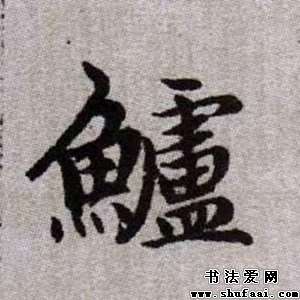 鱸
书法爱网
www.shufaai.com